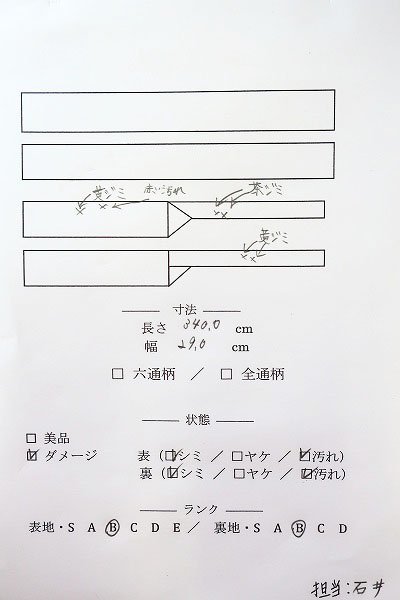 黄ジミ 赤い汚れ 茶ジミ
黄ジミ
寸法
長さ 340.0 cm
幅 29.0 cm
□ 六通柄 ／ □ 全通柄
状態
□ 美品
☑ ダメージ 表（☑シミ ／ □ヤケ ／ ☑汚れ）
裏（☑シミ ／ □ヤケ ／ ☑汚れ）
ランク
表地・S A Ⓑ C D E ／ 裏地・S A Ⓑ C D
担当：石井